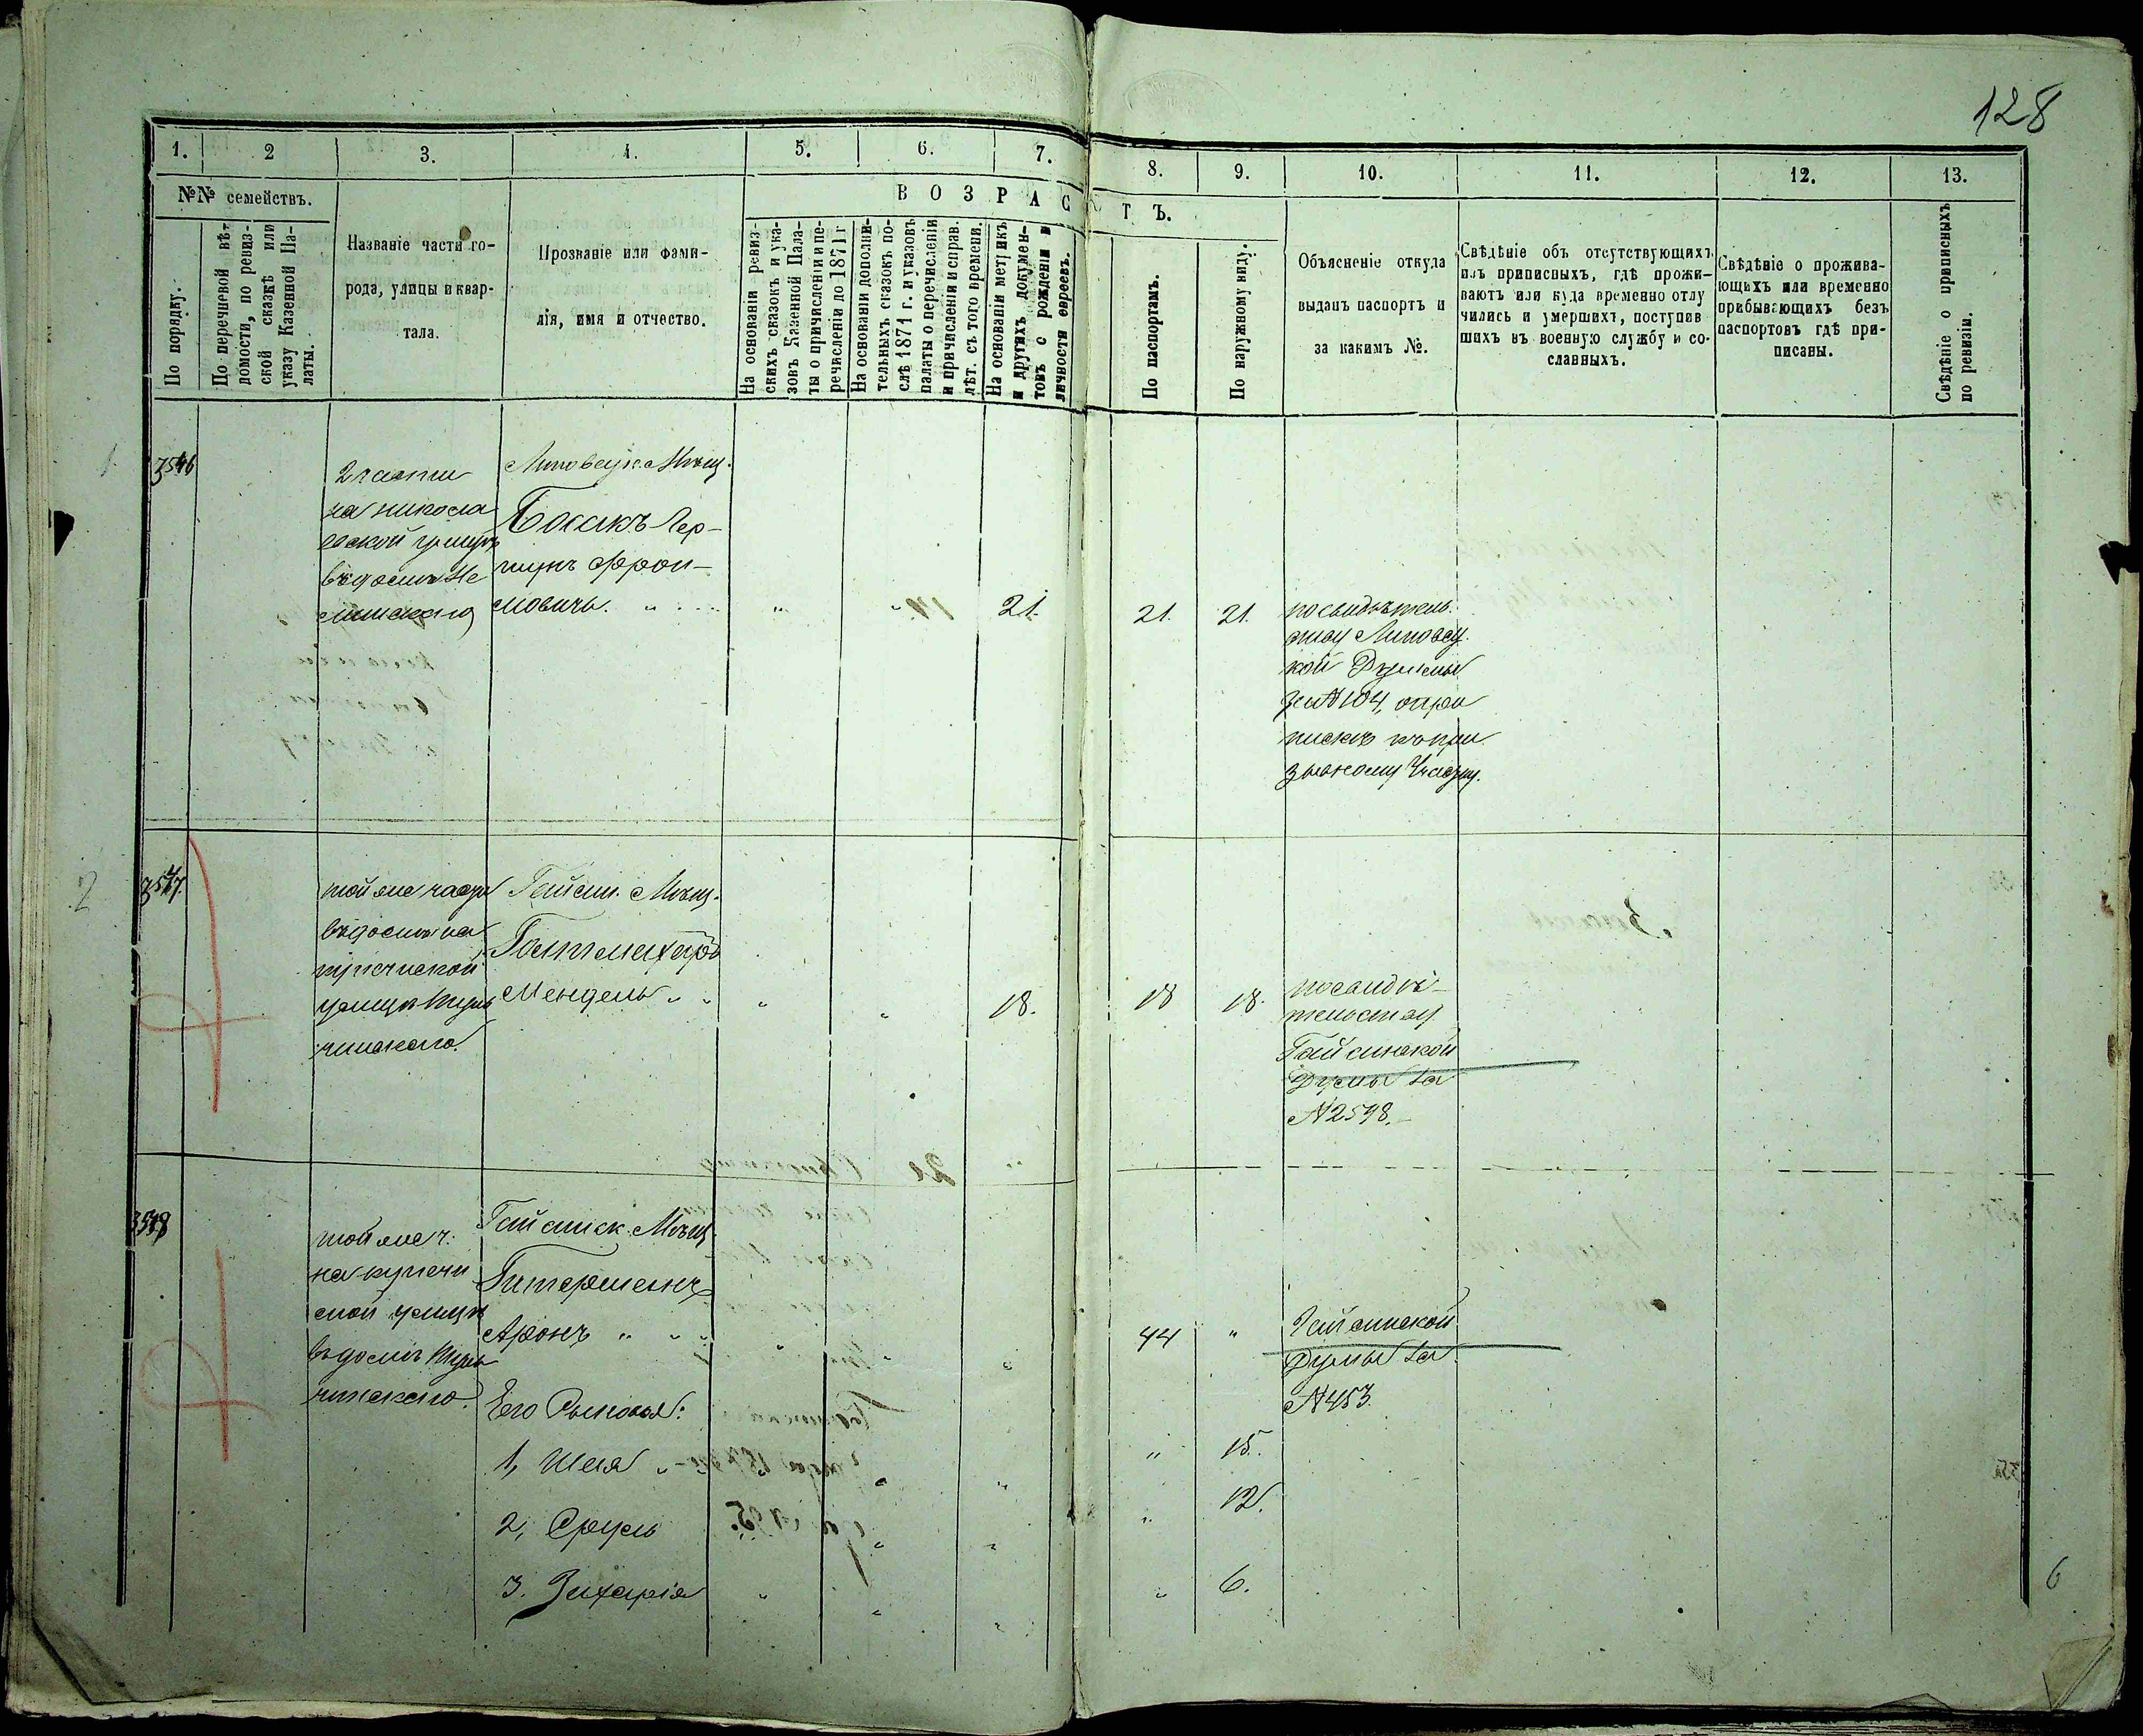 128
1. 2 3. 4. 5. 6. 7. 8. 9. 10. 11. 12. 13.
№№ семействъ.
По порядку.
По перечневой вѣ-
домости, по ревиз-
ской сказкѣ или
указу Казенной Па-
латы.
Названіе части го-
рода, улицы и квар-
тала.
Прозваніе или фами-
лія, имя и отчество.
ВОЗРАСТЪ.
На основаніи ревиз-
скихъ сказокъ и ука-
зовъ Казенной Пала-
ты о причисленіи и пе-
речисленіи до 1871 г
На основаніи дополни-
тельныхъ сказокъ по-
слѣ 1871 г. и указовъ
палаты о перечисленіи
и причисленіи и справ.
лѣт. съ того времени.
На основаніи метрикъ
и другихъ докумен-
товъ о рожденіи и
личности евреевъ.
По паспортамъ.
По наружному виду.
Объясненіе откуда
выданъ паспортъ и
за какимъ №.
Свѣдѣніе объ отсутствующихъ
изъ приписныхъ, гдѣ прожи-
ваютъ или куда временно отлу
чились и умершихъ, поступив
шихъ въ военную службу и со-
славныхъ.
Свѣдѣніе о прожива-
ющихъ или временно
прибывающихъ безъ
паспортовъ гдѣ при-
писаны.
Свѣдѣніе о приписныхъ
по ревизіи.
1
3546
2 части
на никола
евской улицѣ
въ домѣ Не
минскаго
Липовецк. Мѣщ.
Босакъ Гер-
шунъ Фрои-
мовичъ.
21.
21.
21.
по свидѣтель
ству Липовец
кой Думы
за № 104, о при
пискѣ къ при
зывному Участку.
2
3547.
той же части
въ домѣ на
купеческой
улицѣ Туль
чинскаго.
Гайсин. Мѣщ.
Гольтмахеръ
Мендель
18.
18
18.
по свидѣ-
тельству
Гайсинской
Думы за
№ 2598.
3548
той же ч.
на купечи
ской улицѣ
въ домѣ Туль
чинскаго.
Гайсинск. Мѣщ.
Гитерманъ
Аронъ
44
Гайсинской
Думы за
№ 453.
Его Сыновья:
1, Шая
15.
2, Сруль
12.
3. Захарія
6.
6